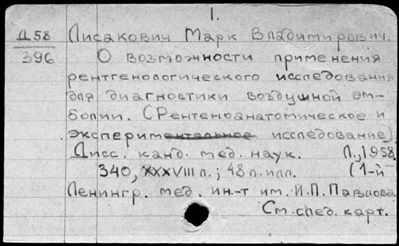 1.
Д58
396
Лисакович Марк Владимирович.
О возможности применения
рентгенологического исследования
для диагностики воздушной эм-
болии. (Рентгеноанатомическое и
экспериментальное исследование).
Дисс. канд. мед. наук. Л., 1958.
340, XXXVIII л.; 48 л. илл. (1-й
Ленингр. мед. ин-т им. И.П. Павлова
См. след. карт.